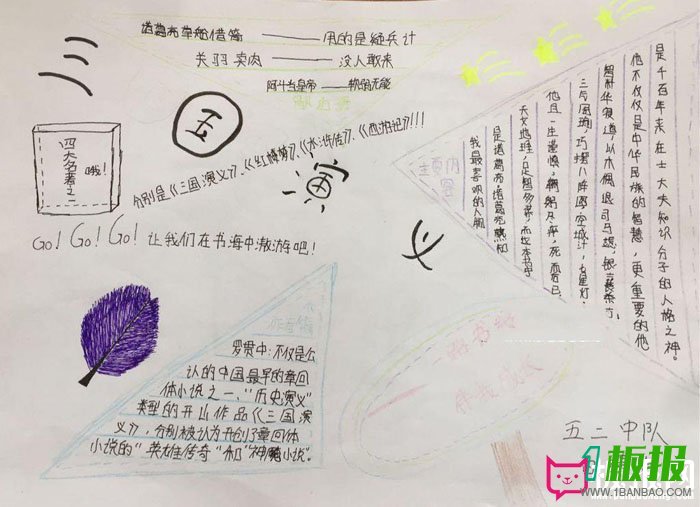 诸葛亮草船借箭——用的是缓兵计
关羽卖肉——没人敢来
阿斗当皇帝——软弱无能
歇后语
三
国
演
义
四大名著之一
哦!
分别是《三国演义》、《红楼梦》、《水浒传》、《西游记》!!!
Go! Go! Go! 让我们在书海中遨游吧!
主要内容
我最喜欢的人物
是诸葛亮,诸葛亮熟知
天文地理,足智多谋,而在本书中
他且一生谨慎,鞠躬尽瘁,死而后已。
三气周瑜,巧摆八阵图空城计,七星灯,
智料华容道,以木偶退司马懿,
他不仅仅是中华民族的智慧,更重要的他
是千百年来在士大夫知识分子的人格之神。
作者简
罗贯中:不仅是公
认的中国最早的章回
体小说之一、“历史演义”
类型的开山作品《三国演
义》,分别被认为开创了章回体
小说的“英雄传奇”和“神魔小说”。
五二中队
1板报
WWW.1BANBAO.COM